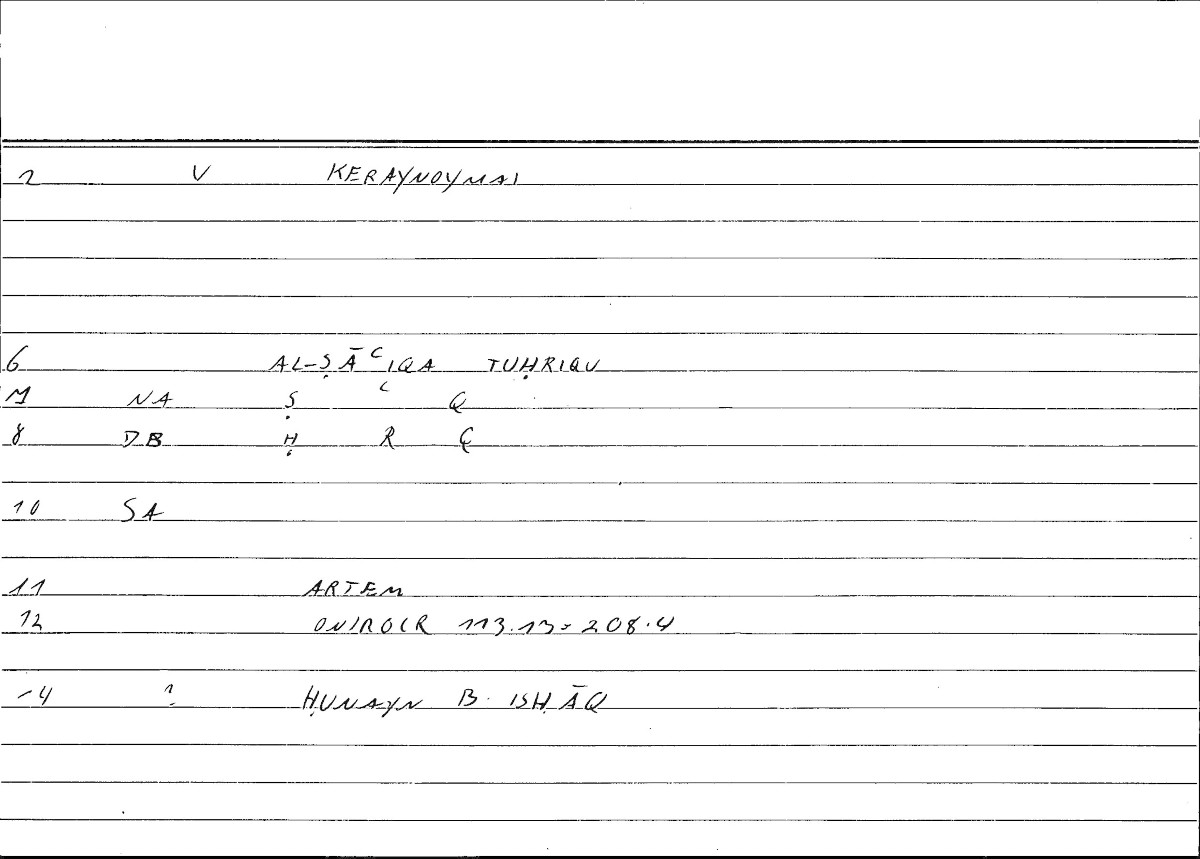 2 V KERAYNOYMAI
6 AL-ṢĀʿIQA TUḤRIQU
M NA Ṣ ʿ Q
8 DB Ḥ R Q
10 SA
11 ARTEM
12 ONIROCR 113.13 = 208.4
14 ? ḤUNAYN B. ISḤĀQ